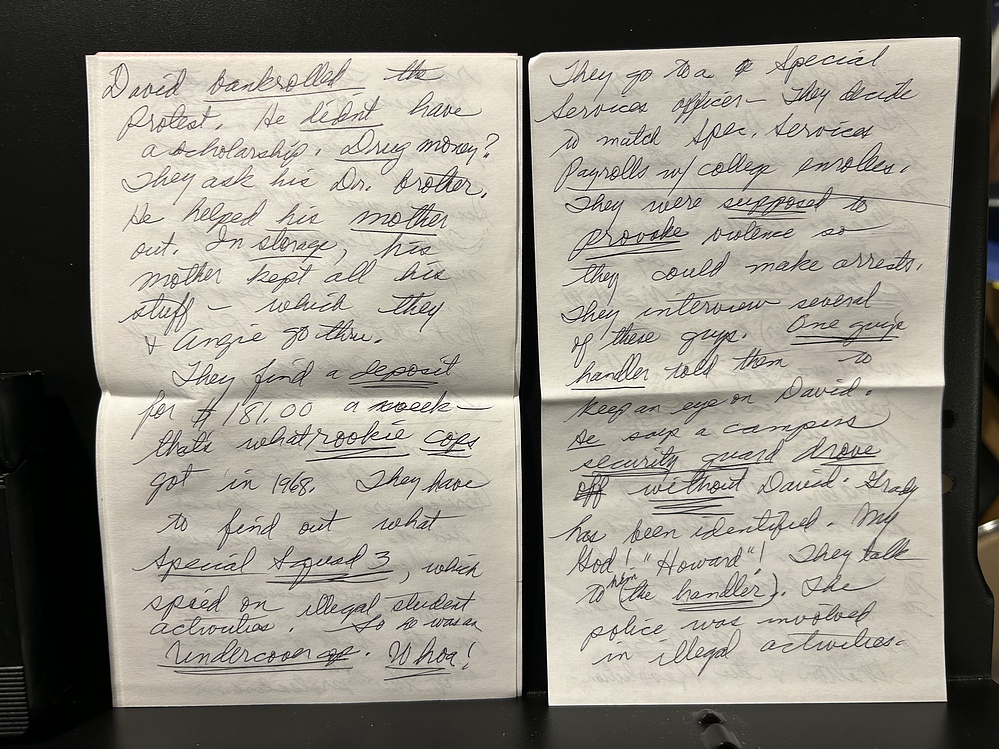 David bankrolled the
Protest. He didnt have
a scholarship. Drug money?
They ask his Dr. brother.
He helped his mother
out. In storage, his
mother kept all his
stuff – which they
& Angie go thru.
They find a deposit
for $181.00 a week –
thats what rookie cops
got in 1968. They have
to find out what
Special Squad 3, which
spied on illegal student
activities. So he was an
Undercover . Whoa!
They go to a Special
Services officer – They decide
to match Spec. Services
Payrolls w/ college enrolles.
They were supposed to
provoke violence so
they could make arrests.
They interview several
of these guys. One guys
handler told them to
keep an eye on David.
He says a campus
security guard drove
off without David. Grady
has been identified. My
God! "Howard"! They talk
to him (the handler). The
police was involved
in illegal activities.